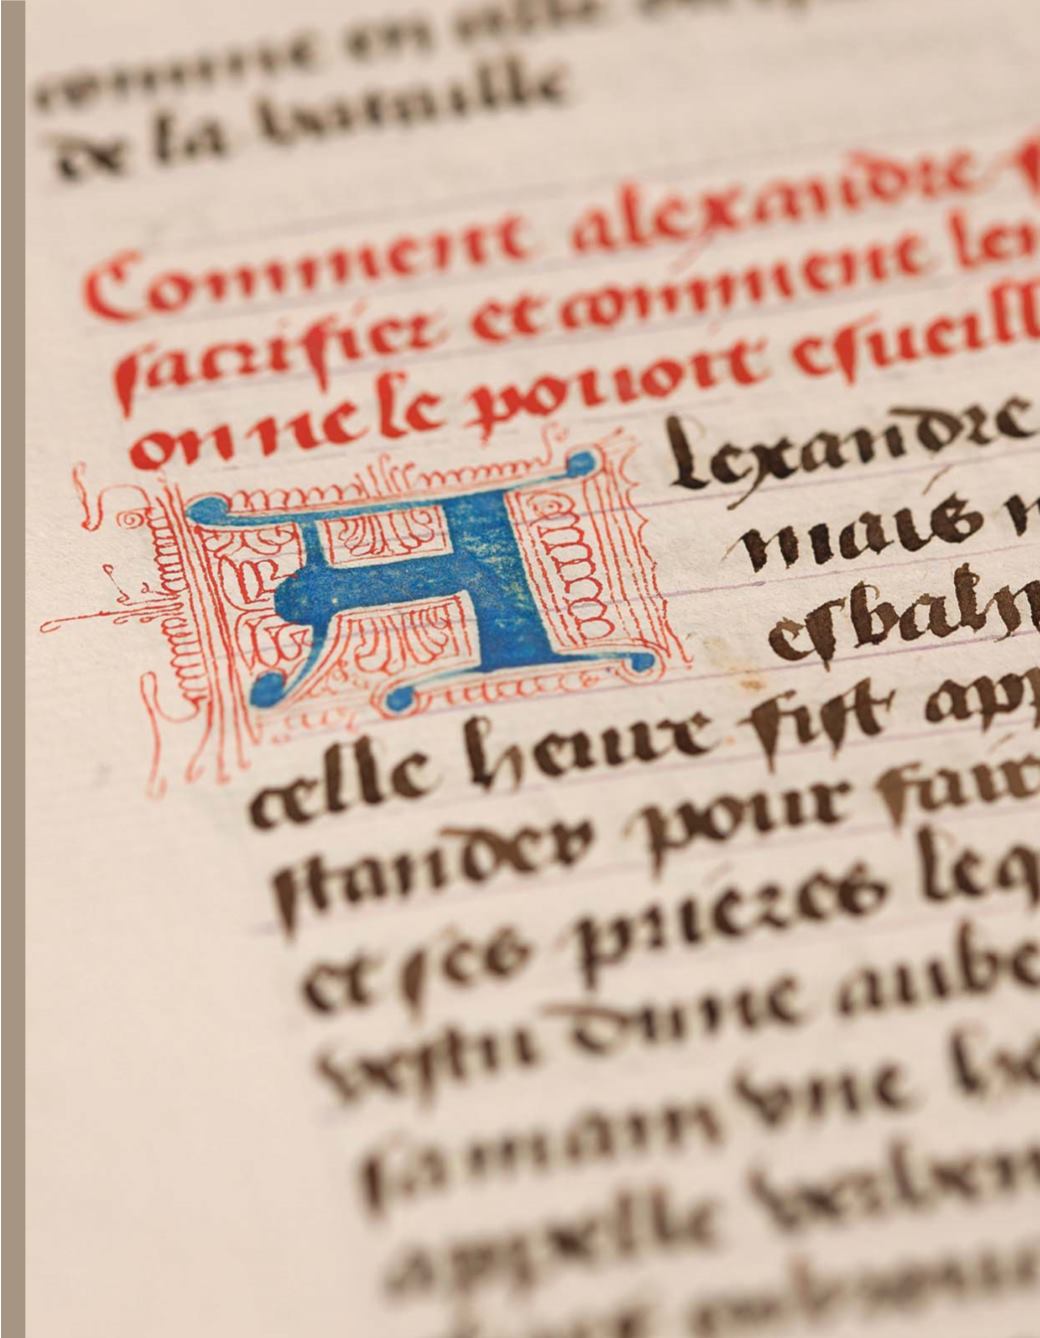 comme en
de la bataille
Comment alexandre
sacrifier et comment
on ne le pouoit esueill
Alexandre
mais
esbah
celle heure fist app
stander pour fair
et ses prieres leq
vestu dune aube
sa main vne
appelle verben